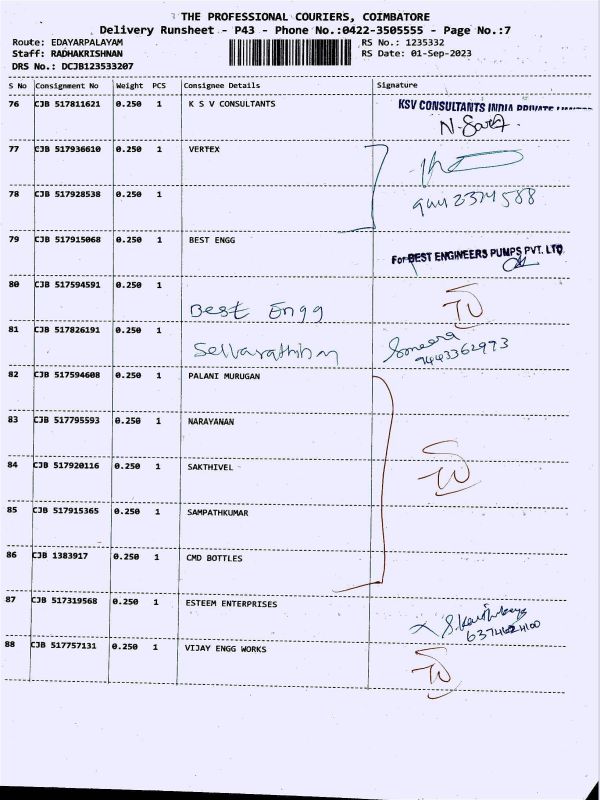 THE PROFESSIONAL COURIERS, COIMBATORE
Delivery Runsheet - P43 - Phone No.:0422-3505555 - Page No.:7
Route: EDAYARPALAYAM RS No.: 1235332
Staff: RADHAKRISHNAN RS Date: 01-Sep-2023
DRS No.: DCJB123533207
S No Consignment No Weight PCS Consignee Details Signature
76 CJB 517811621 0.250 1 K S V CONSULTANTS KSV CONSULTANTS INDIA PRIVATE
77 CJB 517936610 0.250 1 VERTEX
78 CJB 517928538 0.250 1
79 CJB 517915068 0.250 1 BEST ENGG For BEST ENGINEERS PUMPS PVT. LTD
80 CJB 517594591 0.250 1 Best Engg
81 CJB 517826191 0.250 1 9443362973
82 CJB 517594608 0.250 1 PALANI MURUGAN
83 CJB 517795593 0.250 1 NARAYANAN
84 CJB 517920116 0.250 1 SAKTHIVEL
85 CJB 517915365 0.250 1 SAMPATHKUMAR
86 CJB 1383917 0.250 1 CMD BOTTLES
87 CJB 517319568 0.250 1 ESTEEM ENTERPRISES
88 CJB 517757131 0.250 1 VIJAY ENGG WORKS